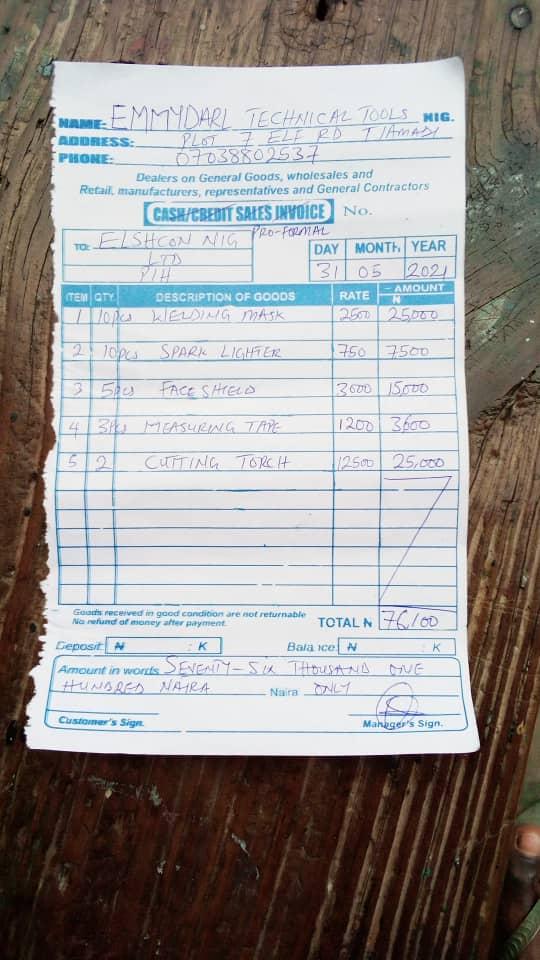 NAME: EMMYDARL TECHNICAL TOOLS NIG.
ADDRESS: PLOT 7 ELF RD T/AMADI
PHONE: 07038802537
Dealers on General Goods, wholesales and
Retail, manufacturers, representatives and General Contractors
CASH/CREDIT SALES INVOICE No.
PRO-FORMAL
TO: ELSHCON NIG
LTD
P/H
DAY MONTH, YEAR
31 05 2021
ITEM QTY. DESCRIPTION OF GOODS RATE AMOUNT
₦
1 10pcs WELDING MASK 2500 25,000
2 10pcs SPARK LIGHTER 750 7500
3 5pcs FACE SHIELD 3000 15,000
4 3pcs MEASURING TAPE 1200 3600
5 2 CUTTING TORCH 12500 25,000
Goods received in good condition are not returnable
No refund of money after payment.
TOTAL ₦ 76,100
Deposit ₦ : K Bala ice ₦ : K
Amount in words SEVENTY-SIX THOUSAND ONE
HUNDRED NAIRA Naira ONLY
Customer's Sign. Manager's Sign.